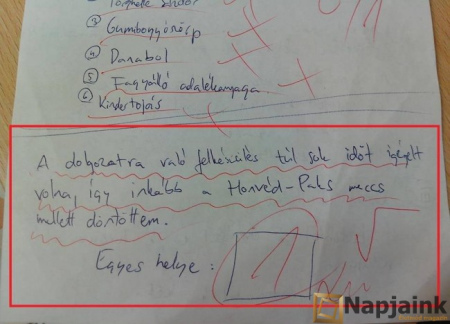 ③ Gumbogyörőcp
④ Danabol
⑤ Fagyálló adalékanyaga
⑥ Kindertojás
A dolgozatra való felkészülés túl sok időt igényelt
volna, így inkább a Honvéd-Paks meccs
mellett döntöttem.
Egyes helye:
1
Napjaink